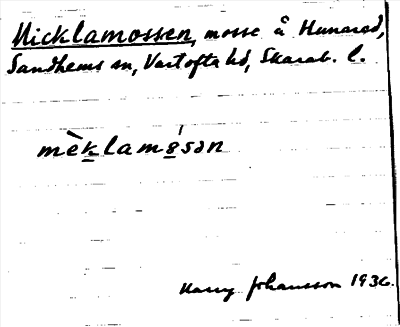 Nicklamossen, mosse å Hunared,
Sandhems sn, Vartofta hd, Skarab. l.
mèk̲lamó̲sən
Harry Johansson 1936.